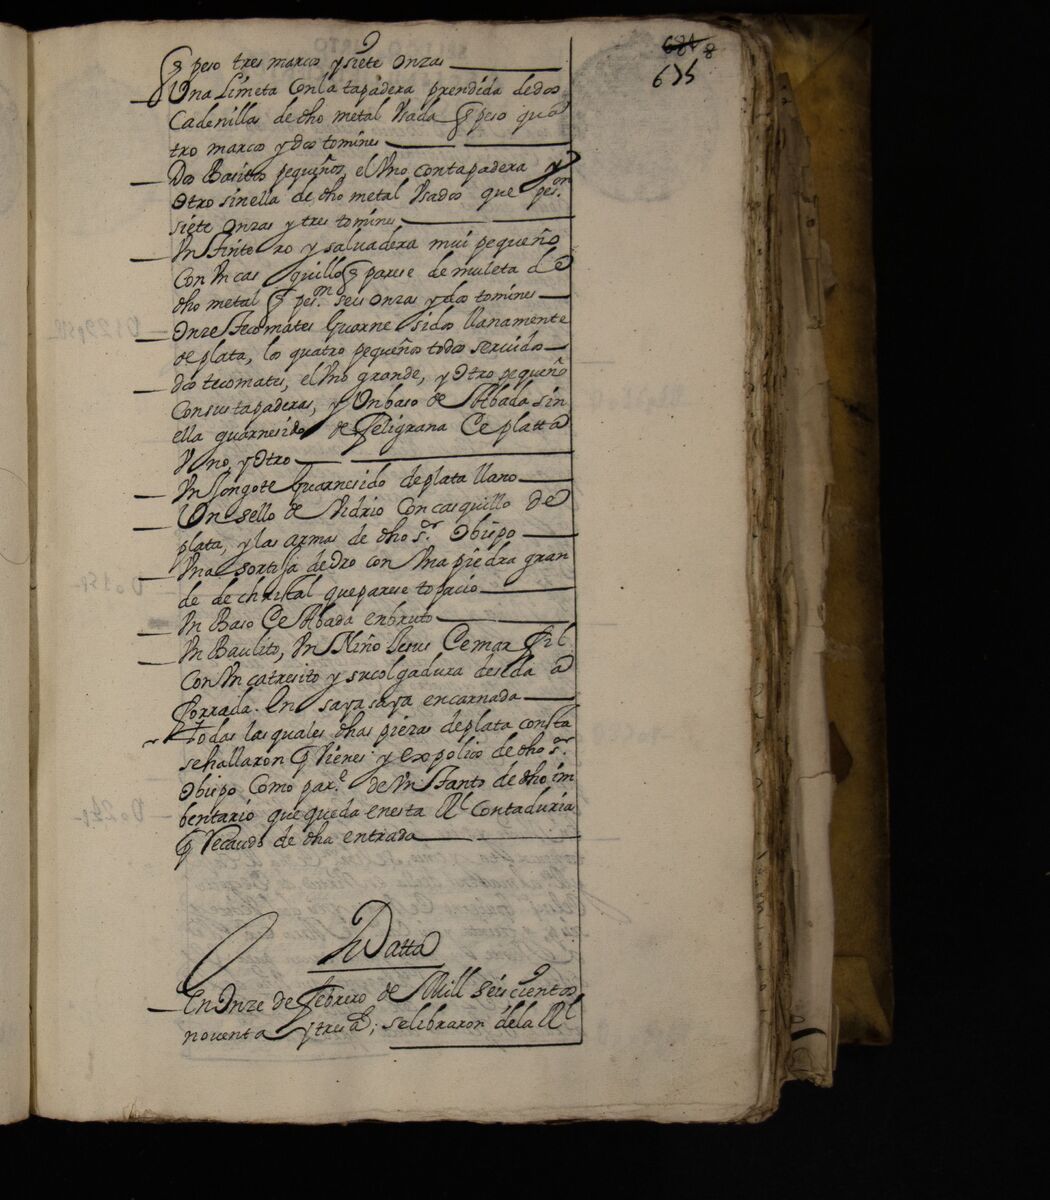 684 8
635
q peso tres marcos y siete onzas
Una Limeta Con la tapadera prendida de dos
Cadenillas de dho metal Usada q peso qua
tro marcos y dos tomines
Dos Basitos pequeños, el Uno con tapadera y
Otro sin ella de dho metal Usados que pes.on
siete onzas y tres tomines
Un tintero y salvadera mui pequeño
Con Un casquillo q parese de muleta de
dho metal q pes.on seis onzas y dos tomines
Onze tecomates Guarnesidos llanamente
de plata, los quatro pequeños todos servidos
dos tecomates, el Uno grande, y Otro pequeño
Con sus tapaderas, y Un baso de Abada sin
ella guarnesido de feligrana de platta
Uno, y Otro
Un Jongote Guarnesido de plata llano
Un sello de Vidrio Con casquillo de
plata, y las armas de dho s.or Obispo
Una sortija de Oro con Una piedra gran
de de christal que parese topacio
Un Baso de Abada en bruto
Un Baulito, Un Niño Jesus de marfil
Con Un catresito y su colgadura de seda a
forrada. en saya saya encarnada
Todas las quales dhas piezas de plata consta
se hallaron p.r vienes y expolios de dho s.or
Obispo Como par.e de Un tanto de dho im
bentario que queda en esta Rl Contaduria
p.r Recaudo de dha entrada
Datta
En Onze de febrero de Mill seiscientos
noventa y tres a.s; se libraron de la Rl